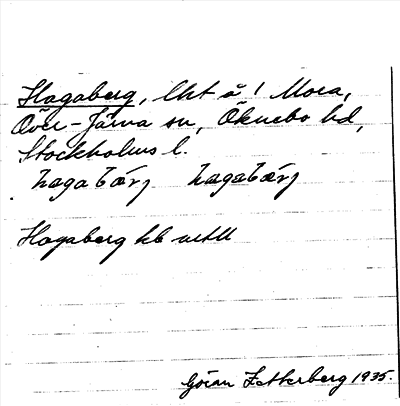 Hagaberg, lht å 1 Mora,
Över-Järna sn, Öknebo hd,
Stockholms l.
hagabærj hagabærj
Hagaberg kb
Göran Zetterberg 1935.